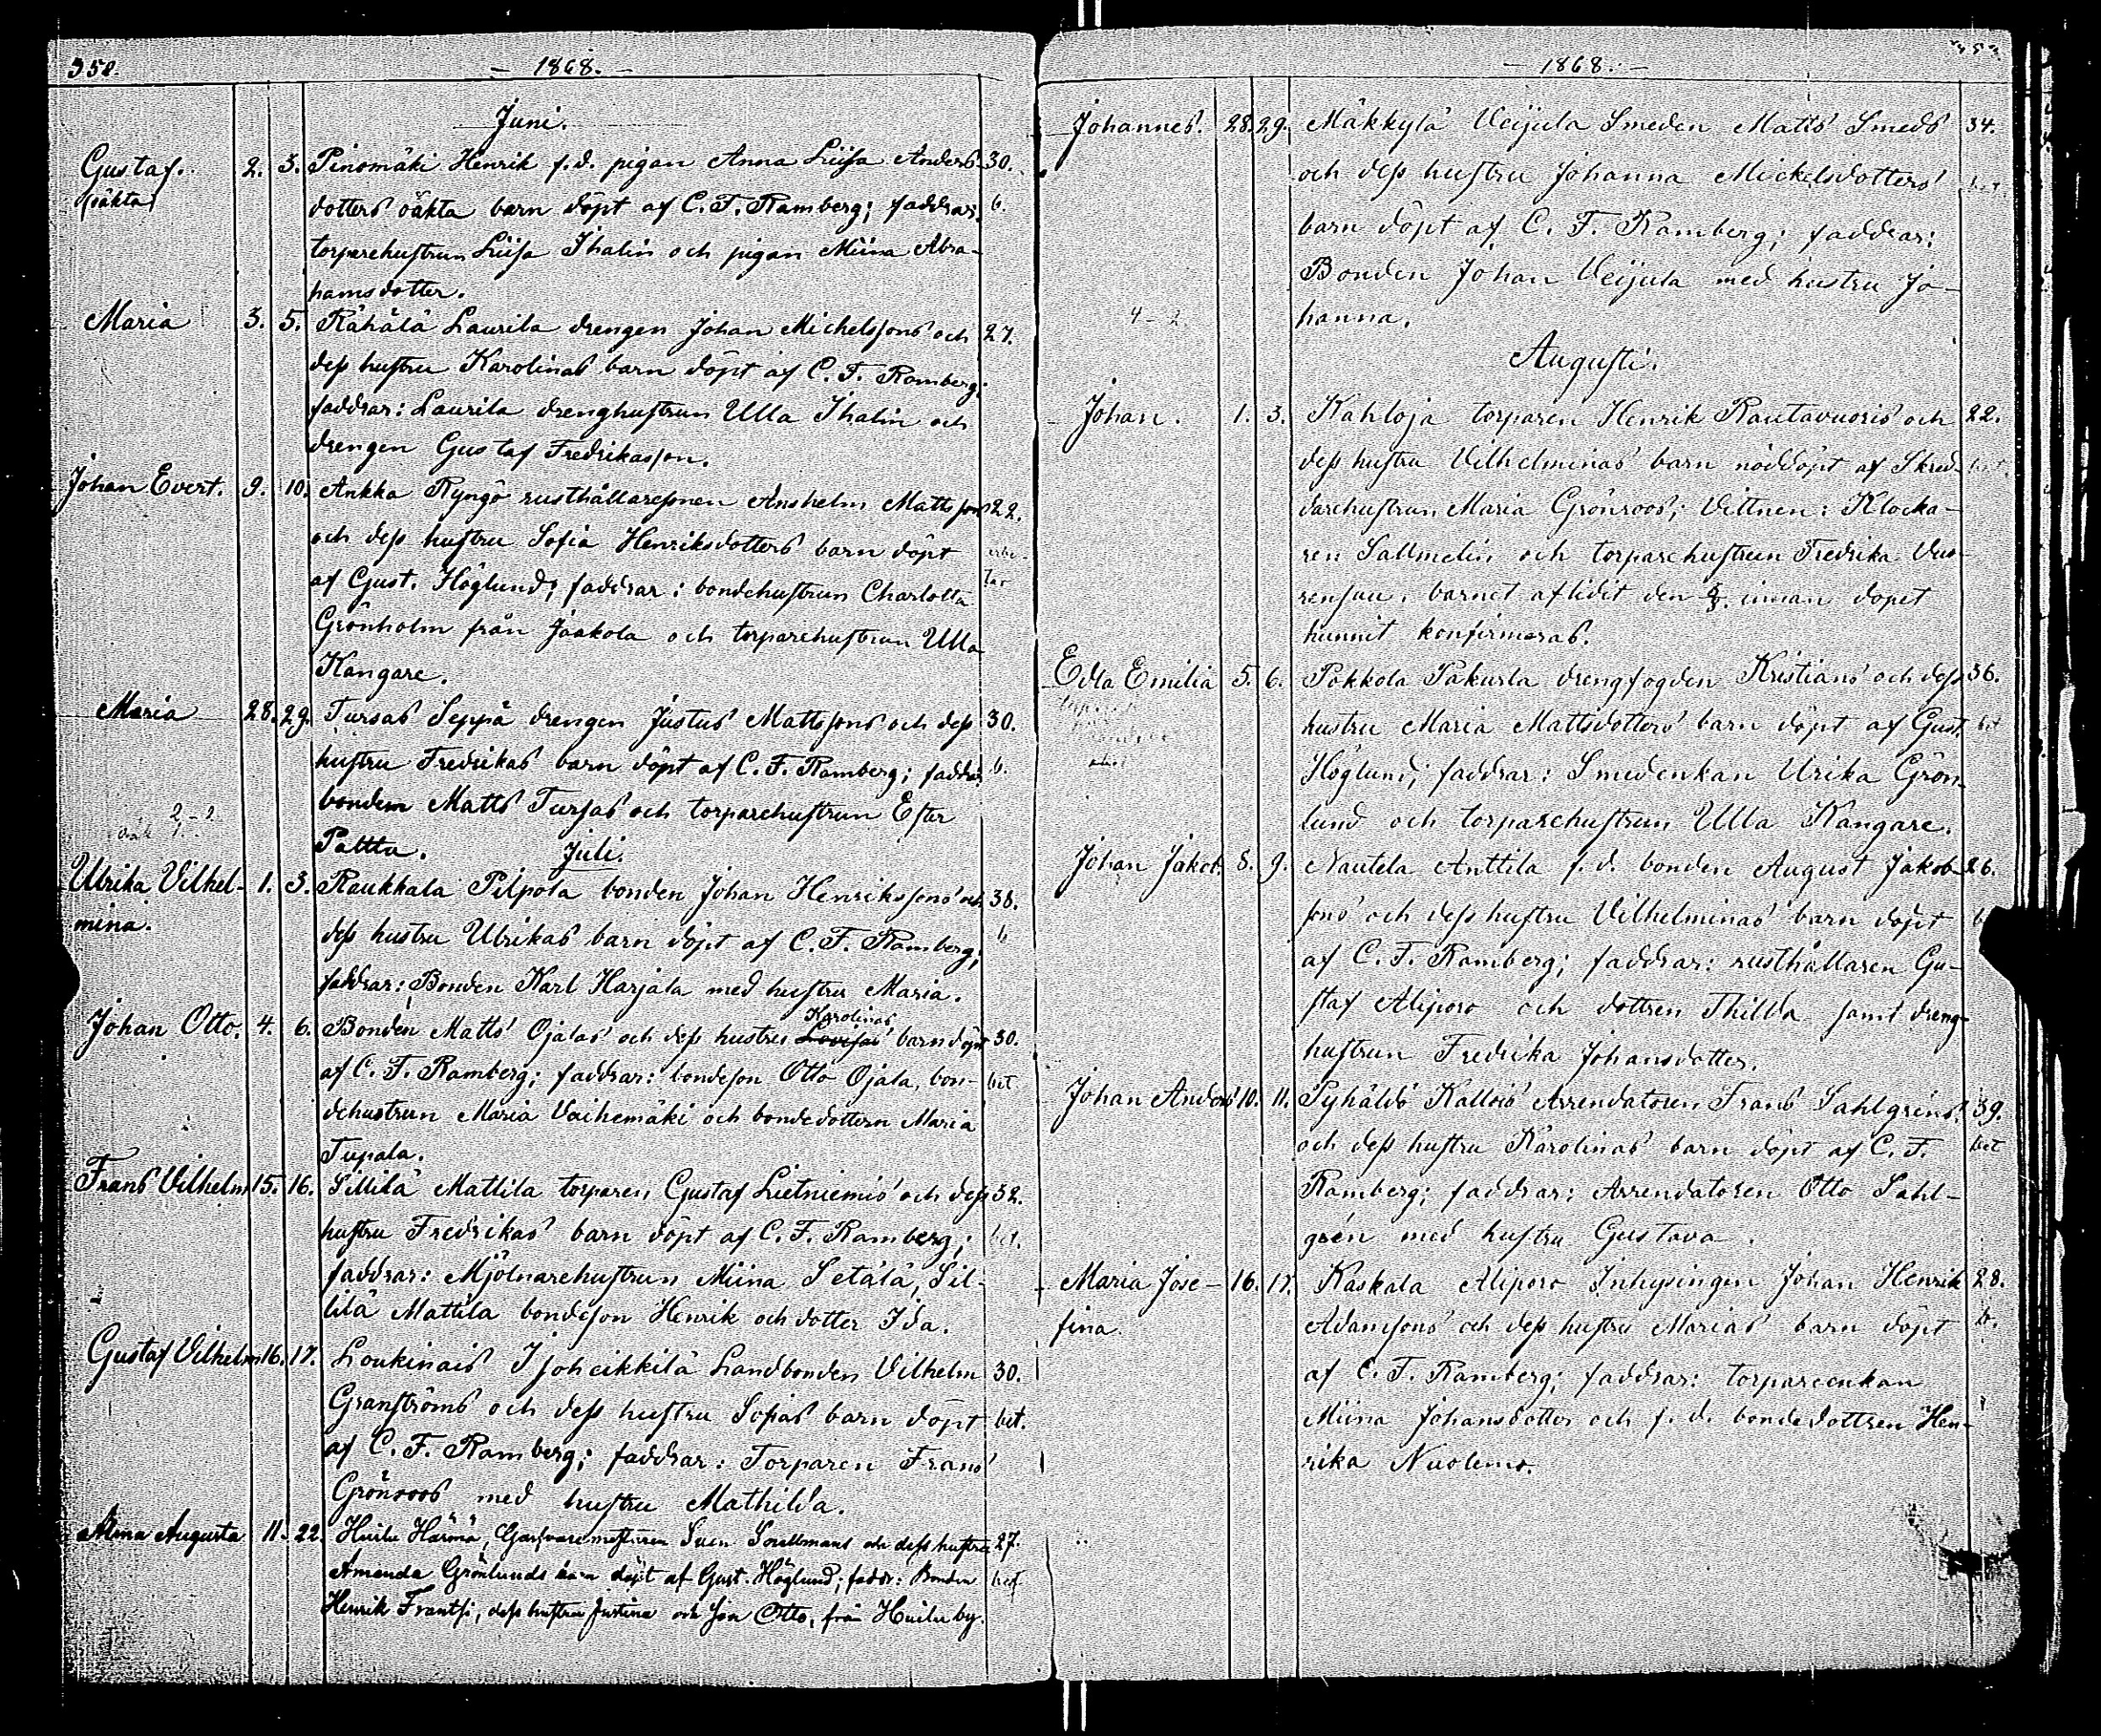 358.
- 1868. -
Juni.
Gustaf. 2. 3. Pinomäki Henrik f.d. pigan Anna Liisa Anders- 30.
(oäkta) dotters oäkta barn döpt af C. F. Ramberg; faddrar: b.
torparehustrun Liisa Ihalin och pigan Miina Abra-
hamsdotter.
Maria 3. 5. Rähälä Laurila drengen Johan Michelssons och 27.
dess hustru Karolinas barn döpt af C. F. Ramberg;
faddrar: Laurila drenghustrun Ulla Ihalin och
drengen Gustaf Fredriksson.
Johan Evert. 9. 10. Ankka Ryngö rusthållaresonen Anshelm Mattssons 22.
och dess hustru Sofia Henriksdotters barn döpt
af Gust. Höglund; faddrar: bondehustrun Charlotta
Grönholm från Jaakola och torparehustrun Ulla
Kangare.
Maria 28. 29. Tursas Seppä drengen Justus Mattssons och dess 30.
hustru Fredrikas barn döpt af C. F. Ramberg; faddrar: b.
bonden Matts Tursas och torparehustrun Ester
2-2
Palttu. Juli.
Ulrika Vilhel- 1. 3. Raukkala Pilpola bonden Johan Henrikssons och 38.
mina. dess hustru Ulrikas barn döpt af C. F. Ramberg; b
faddrar: Bonden Karl Harjala med hustru Maria.
Karolinas
Johan Otto. 4. 6. Bonden Matts Ojalas och dess hustru Lovisas barn döpt 30.
af C. F. Ramberg; faddrar: bondeson Otto Ojala, bon- bet
dehustrun Maria Vaihemäki och bondedottern Maria
Tupala.
Frans Vilhelm 15. 16. Sillilä Mattila torparen Gustaf Lietniemis och dess 32.
hustru Fredrikas barn döpt af C. F. Ramberg; bet.
faddrar: Mjölnarehustrun Miina Setälä, Sil-
lilä Mattila bondeson Henrik och dotter Ida.
Gustaf Vilhelm 16. 17. Loukinais Ijoheikkilä Landbonden Vilhelm 30.
Granströms och dess hustru Sofias barn döpt bet.
af C. F. Ramberg; faddrar: Torparen Frans
Grönroos med hustru Mathilda.
Alma Augusta 11. 22. Huilu Härmä, Garfvaremästaren Sven Snellmans och dess hustru 27.
Amanda Grönlunds barn döpt af Gust. Höglund; faddr: Bonden bet.
Henrik Frantsi, dess hustru Justina och son Otto, från Huilu by.
- 1868. -
Johannes. 28. 29. Mäkkylä Veijula Smeden Matts Smeds 34.
och dess hustru Johanna Mickelsdotters bet
barn döpt af C. F. Ramberg; faddrar:
Bonden Johan Veijula med hustru Jo-
4-2 hanna.
Augusti.
Johan. 1. 3. Kahloja torparen Henrik Rautavuoris och 22.
dess hustru Vilhelminas barn nöddöpt af Skräd- bet
darehustrun Maria Grönroos; Vittnen: Klocka-
ren Sallmelin och torparehustrun Fredrika Vuo-
rensuu. barnet aflidit den innan dopet
hunnit konfirmeras.
Edla Emilia 5. 6. Pokkola Pakurla drengfogden Kristians och dess 36.
hustru Maria Mattsdotters barn döpt af Gust. bet
Höglund; faddrar: Smedenkan Ulrika Grön-
lund och torparehustrun Ulla Kangare.
Johan Jakob. 8. 9. Nautela Anttila f.d. bonden August Jakobs- 26.
sons och dess hustru Vilhelminas barn döpt
af C. F. Ramberg; faddrar: rusthållaren Gu-
staf Aliporo och dottren Thilda samt dreng-
hustrun Fredrika Johansdotter.
Johan Anders 10. 11. Pyhältö Kallois Arrendatoren Frans Sahlgréns 39.
och dess hustru Karolinas barn döpt af C. F. bet
Ramberg; faddrar: Arrendatoren Otto Sahl-
grén med hustru Gustava.
Maria Jose- 16. 17. Kaskala Aliporo Inhysingen Johan Henrik 28.
fina. Adamsons och dess hustru Marias barn döpt b.
af C. F. Ramberg; faddrar: torpareenkan
Miina Johansdotter och f.d. bondedottren Hen-
rika Nuolemo.